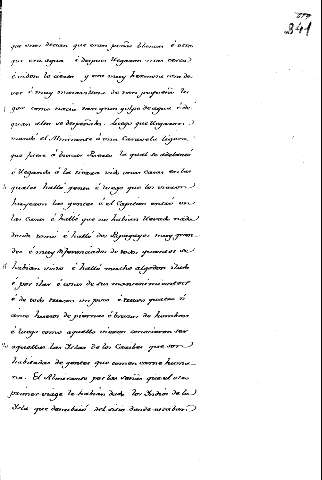 241
que unos decian que eran peñas blancas é otros
que era agua é despues llegaron mas cerca
é vidose lo cierto y era muy hermosa cosa de
ver é muy maravillosa de tan pequeño lu
gar como nacia tan gran golpe de agua é de
quan alto se despeñaba luego que llegaron
mandó el Almirante á una Caravela ligera
que fuese á buscar Puerto la qual se adelantó
é llegando á la tierra vido unas Casas en las
quales halló gente é luego que los vieron
huyeron las gentes é el Capitan entró en
las Casas é halló que no habian llevado nada
donde tomó é halló dos Papagayos muy gran
des é muy diferenciados de todos quantos se
habian visto é halló mucho algodon hilado
é por hilar é cosas de su mantenimiento
é de todo trajeron un poco é trajo quatro ó
cinco huesos de piernas é brazos de hombres
é luego como aquello vieron conocieron ser
aquellas las Islas de los Caribes que son
habitadas de gentes que comen carne huma
na. El Almirante por las señas que el otro
primer viage le habian dado los Indios de la
Isla que descubrió del sitio donde estaban